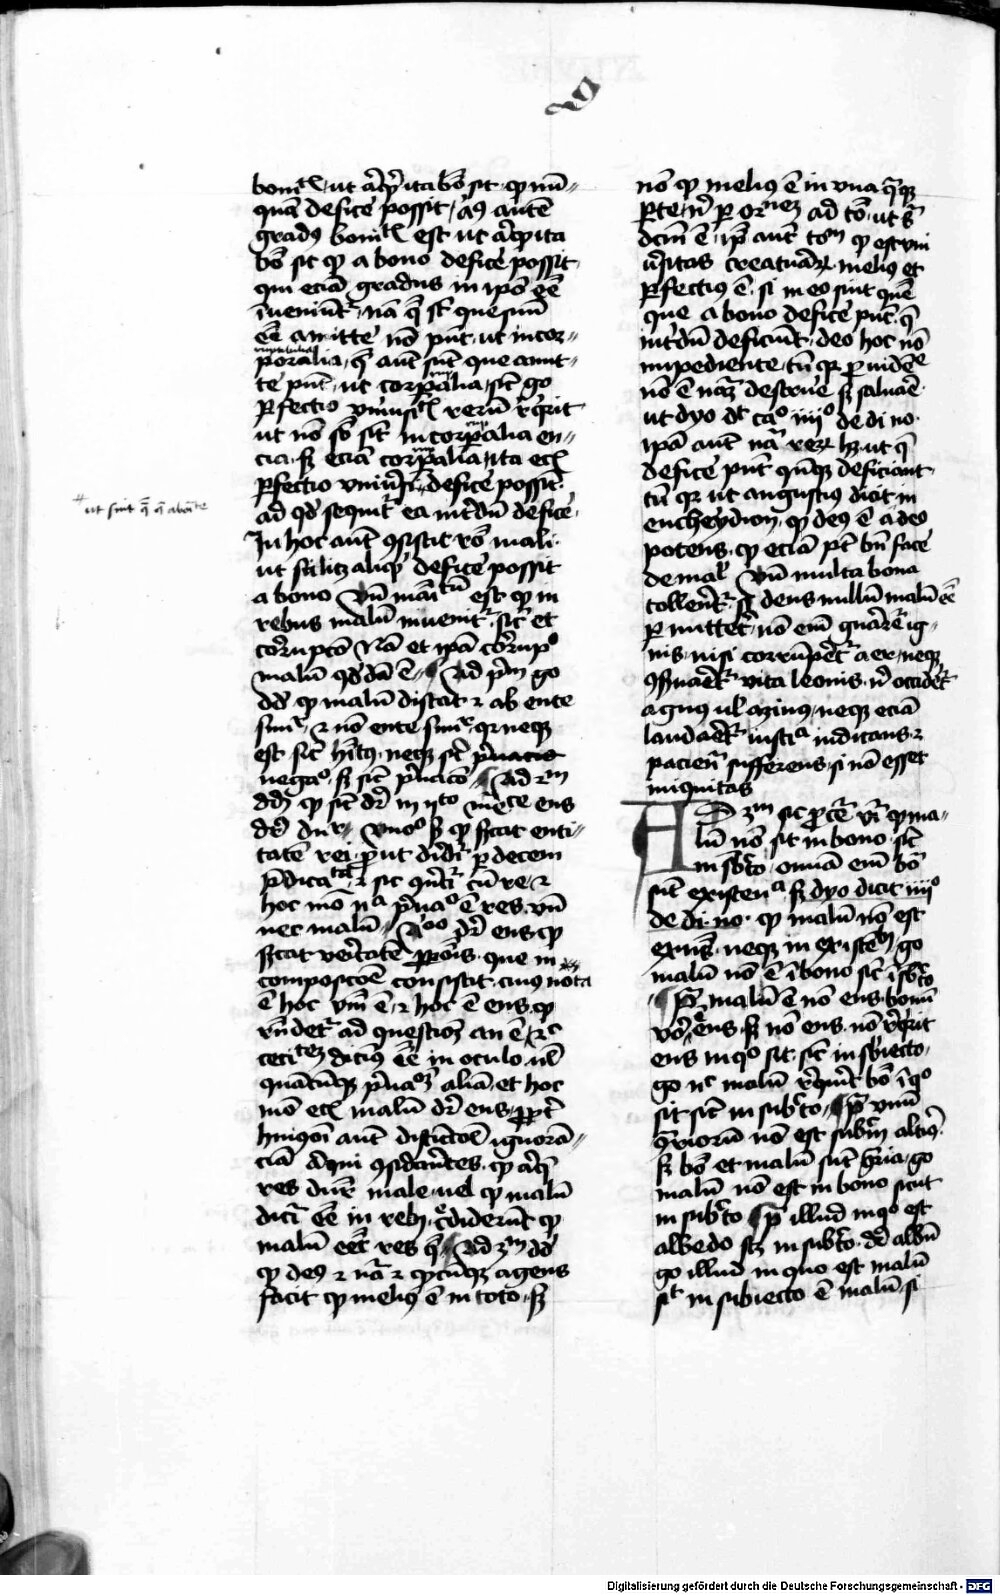 bonitatis ut aliquid ita bonum sit quod num-
quam deficere possit alius autem
gradus bonitatis est ut aliquid ita
bonum sit quod a bono deficere possit
qui eciam gradus in ipso esse
inveniuntur nam quedam sunt que suum
esse amittere non possunt ut incor-
poralia quedam autem sunt que amit-
tere possunt ut corporalia sicut ergo
perfectio universitatis rerum requirit
ut non solum sint incorporalia en-
cia sed eciam corporalia ita etiam
perfectio universi deficere possit
ad quod sequitur ea interdum deficere
ut sint quedam que a bonitate
In hoc autem consistit racio mali
ut scilicet aliquid deficere possit
a bono Unde manifestum est quod in
rebus malum invenitur sicut et
corrupcio Nam et ipsa corrupcio
malum quoddam est Ad primum ergo
dicendum quod malum distat et ab ente
simpliciter et non ente simpliciter quia neque
est sicut habitus neque sicut pura
negacio sed sicut privacio Ad 2m
dicendum quod sicut dicitur in vto metaphisice ens
dicitur dupliciter Uno modo secundum quod significat enti-
tatem rei prout dividitur per decem
predicamenta et sic convertitur cum re et
hoc modo nulla privacio est res unde
nec malum Alio modo dicitur ens quod
significat veritatem proposicionis que in
composicione consistit cuius nota
est hoc verbum est et hoc est ens quo
respondetur ad questionem an est et sic
cecitatem dicimus esse in oculo vel
quamcumque privacionem aliam et hoc
modo etiam malum dicitur ens propter
huiusmodi autem distinctionis ignoran-
ciam aliqui considerantes quod alique
res dicuntur male vel quod malum
dicitur esse in rebus crediderunt quod
malum esset res quedam Ad 3m dicendum
quod deus et natura et quodcumque agens
facit quod melius est in toto sed
non quod melius est in unaquaque
parte nisi per ordinem ad totum ut supra
dictum est ipsum autem totum quod est uni-
versitas creaturarum melius et
perfectius est si in eo sint quedam
que a bono deficere possunt que
interdum deficiunt deo hoc non
impediente tum quia providencie
non est naturam destruere sed salvare
ut dyo dicit ca° iiii° de di no
ipsa autem natura rerum habet ut que
deficere possunt quandoque deficiant
tum quia ut augustinus dicit in
encheydion quod deus est adeo
potens quod eciam potest bene facere
de malo Unde multa bona
tollerentur si deus nullum malum esse
permitteret non enim generaretur ig-
nis nisi corrumperetur aer neque
conservaretur vita leonis nisi occideretur
agnus vel azinus neque eciam
laudaretur iusticia iudicans et
paciencia sufferens si non esset
iniquitas
AD 3m sic proceditur videtur quod ma-
lum non sit in bono sicut
in subiecto omnia enim bona
sunt existencia sed dyo dicit iiii°
de di no quod malum non est
existens neque in existentibus ergo
malum non est in bono sicut in subiecto
Preterea malum est non ens bonum
vero est ens sed non ens non requirit
ens in quo sit sicut in subiecto
ergo nec malum requirit bonum in quo
sit sicut in subiecto Preterea unum
contrariorum non est subiectum alterius
sed bonum et malum sunt contraria ergo
malum non est in bono sicut
in subiecto Preterea illud in quo est
albedo sicut in subiecto dicitur album
ergo illud in quo est malum
sicut in subiecto est malum si